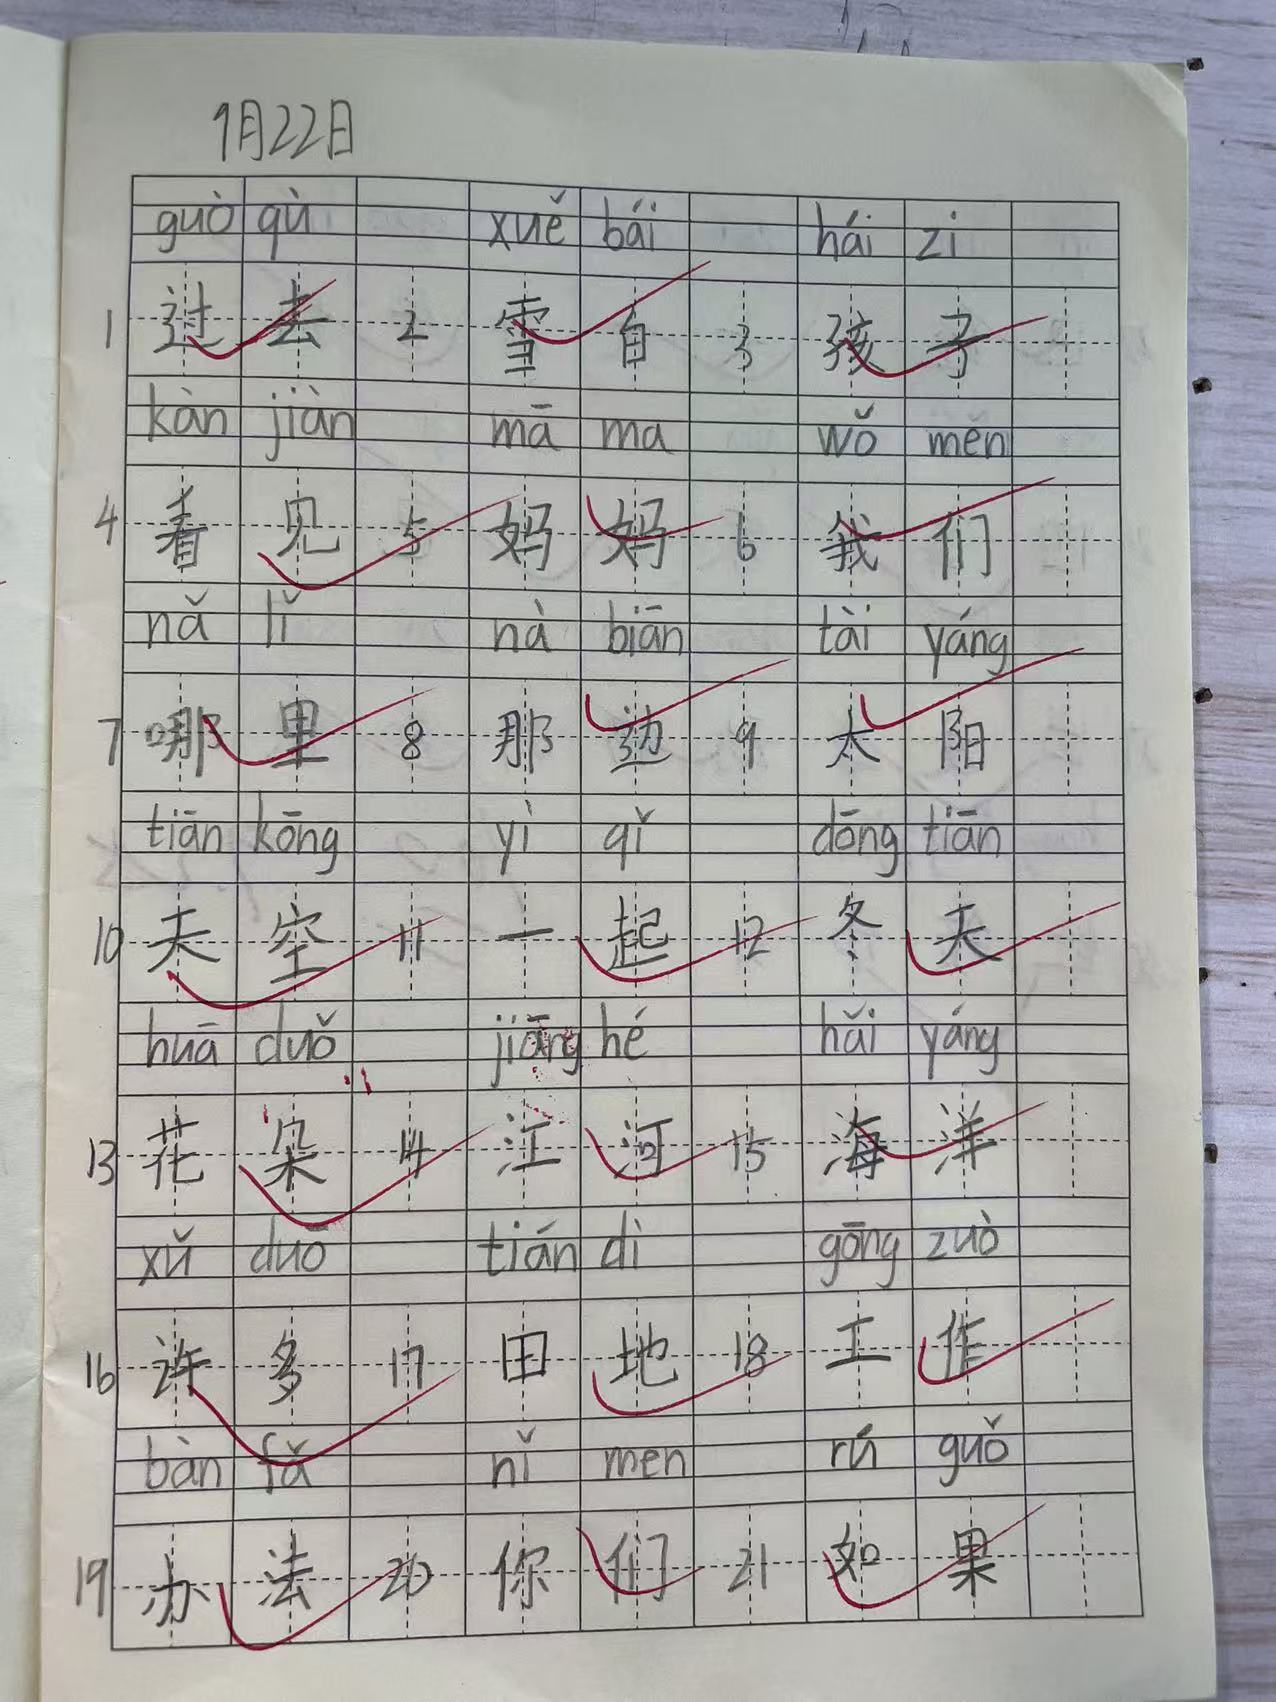 9月22日
guò qù xuě bái hái zi
1 过去 2 雪白 3 孩子
kàn jiàn mā ma wǒ měn
4 看见 5 妈妈 6 我们
nǎ lǐ nà biān tài yáng
7 哪里 8 那边 9 太阳
tiān kōng yì qǐ dōng tiān
10 天空 11 一起 12 冬天
huā duǒ jiāng hé hǎi yáng
13 花朵 14 江河 15 海洋
xǔ duō tián dì gōng zuò
16 许多 17 田地 18 工作
bàn fǎ nǐ men rú guǒ
19 办法 20 你们 21 如果